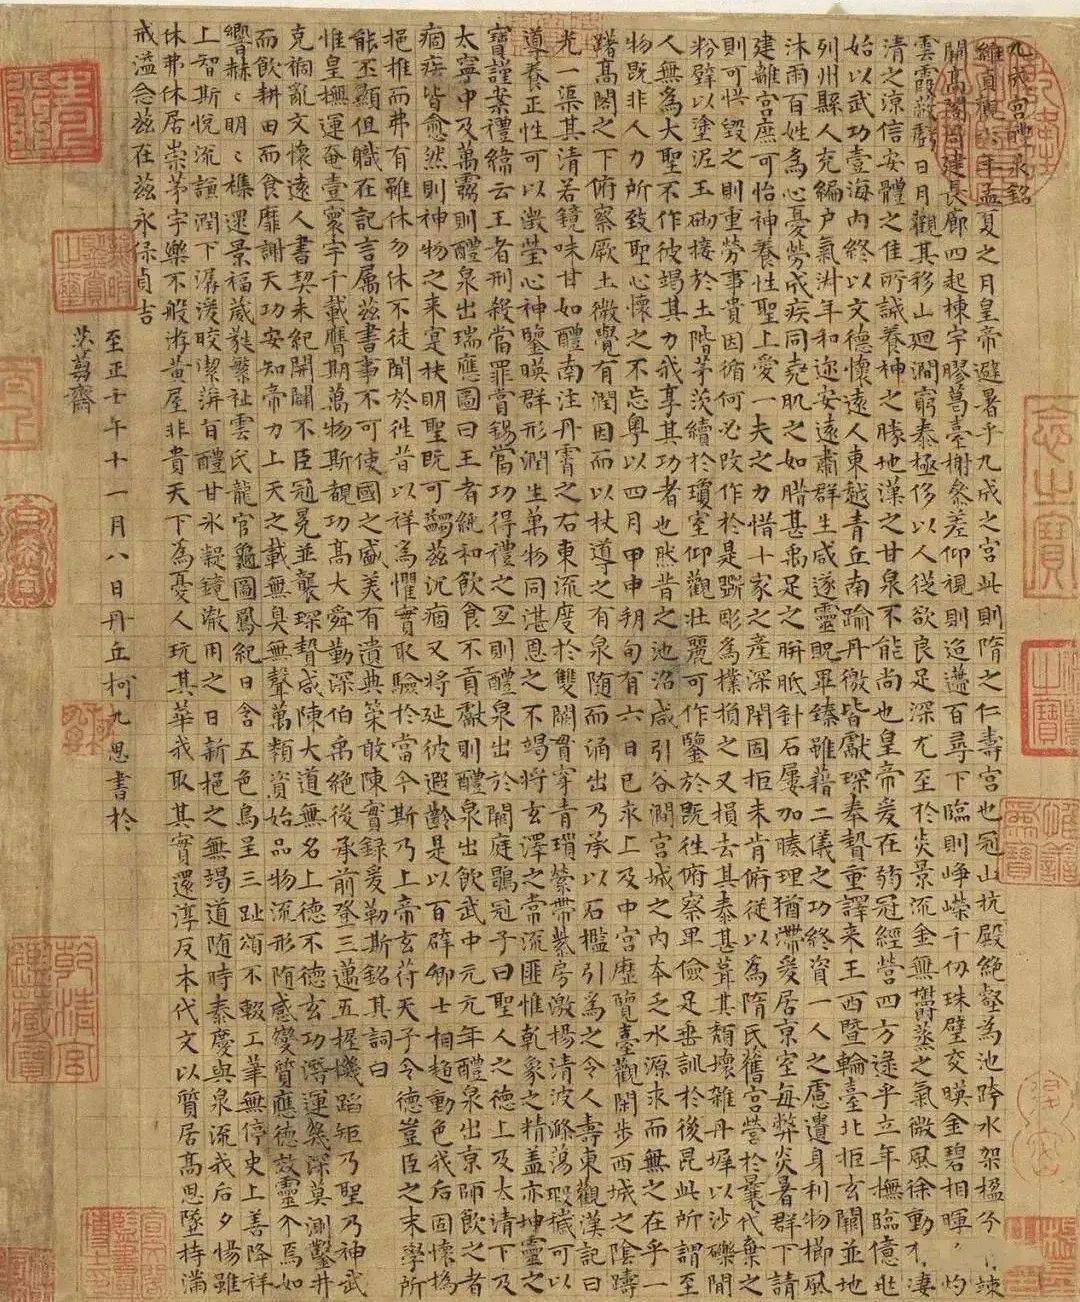 九成宮醴泉銘
維貞觀六年孟夏之月皇帝避暑乎九成之宮此則隋之仁壽宮也冠山抗殿絕壑為池跨水架楹分竦
闕高閣周建長廊四起棟宇膠葛臺榭參差仰視則迢遰百尋下臨則崢嶸千仞珠璧交暎金碧相暉灼
雲霞蔽虧日月觀其移山迴澗窮泰極侈以人從欲良足深尤至於炎景流金無鬱蒸之氣微風徐動有淒
清之涼信安體之佳所誠養神之勝地漢之甘泉不能尚也皇帝爰在弱冠經營四方逮乎立年撫臨億兆
始以武功壹海內終以文德懷遠人東越青丘南踰丹徼皆獻琛奉贄重譯来王西暨輪臺北拒玄闕並地
列州縣人充編户氣淑年和迩安遠肅群生咸遂靈貺畢臻雖藉二儀之功終資一人之慮遺身利物櫛風
沐雨百姓為心憂勞成疾同堯肌之如腊甚禹足之胼胝針石屢加腠理猶滯爰居京室每弊炎暑群下請
建離宮庶可怡神養性聖上愛一夫之力惜十家之產深閉固拒未肯俯從以為隋氏舊宮營於曩代棄之
則可惜毀之則重勞事貴因循何必改作於是斲彫為樸損之又損去其泰甚葺其頹壞雜丹墀以沙礫間
粉壁以塗泥玉砌接於土階茅茨續於瓊室仰觀壯麗可作鑒於既往俯察卑儉足垂訓於後昆此所謂至
人無為大聖不作彼竭其力我享其功者也然昔之池沼咸引谷澗宮城之內本乏水源求而無之在乎一
物既非人力所致聖心懷之不忘粵以四月甲申朔旬有六日己亥上及中宮歷覽臺觀閑步西城之陰躊
躇高閣之下俯察厥土微覺有潤因而以杖導之有泉隨而涌出乃承以石檻引為之令人壽東觀漢記曰
光一渠其清若鏡味甘如醴南注丹霄之右東流度於雙闕貫穿青瑣縈帶紫房激揚清波滌蕩瑕穢可以
導養正性可以澂瑩心神鑒暎群形潤生萬物同湛恩之不竭將玄澤之常流匪惟乾象之精蓋亦坤靈之
寶謹案禮緯云王者刑殺當罪賞錫當功得禮之宜則醴泉出於闕庭鶡冠子曰聖人之德上及太清下及
太寧中及萬靈則醴泉出瑞應圖曰王者純和飲食不貢獻則醴泉出飲武中元元年醴泉出京師飲之者
痼疾皆愈然則神物之来寔扶明聖既可蠲茲沉痼又將延彼遐齡是以百辟卿士相趍動色我后固懷撝
挹推而弗有雖休勿休不徒聞於往昔以祥為懼實取驗於當今斯乃上帝玄符天子令德豈臣之末學所
能丕顯但職在記言屬茲書事不可使國之盛美有遺典策敢陳實錄爰勒斯銘其詞曰
惟皇撫運奄壹寰宇千載膺期萬物斯覩功高大舜勤深伯禹絕後承前登三邁五握機蹈矩乃聖乃神武
克禍亂文懷遠人書契未紀開闢不臣冠冕並襲琛贄咸陳大道無名上德不德玄功潛運幾深莫測鑿井
而飲耕田而食靡謝天功安知帝力上天之載無臭無聲萬類資始品物流形隨感變質應德效靈介焉如
響赫〻明〻雜遝景福葳蕤繁祉雲氏龍官龜圖鳳紀日含五色烏呈三趾頌不輟工筆無停史上善降祥
上智斯悅流謙潤下潺湲皎潔蓱旨醴甘冰凝鏡澈用之日新挹之無竭道隨時泰慶與泉流我后夕惕雖
休弗休居崇茅宇樂不般游黃屋非貴天下為憂人玩其華我取其實還淳反本代文以質居高思墜持滿
戒溢念茲在茲永保貞吉
至正壬午十一月八日丹丘柯九思書於
齋
乾清宮鑒藏寶